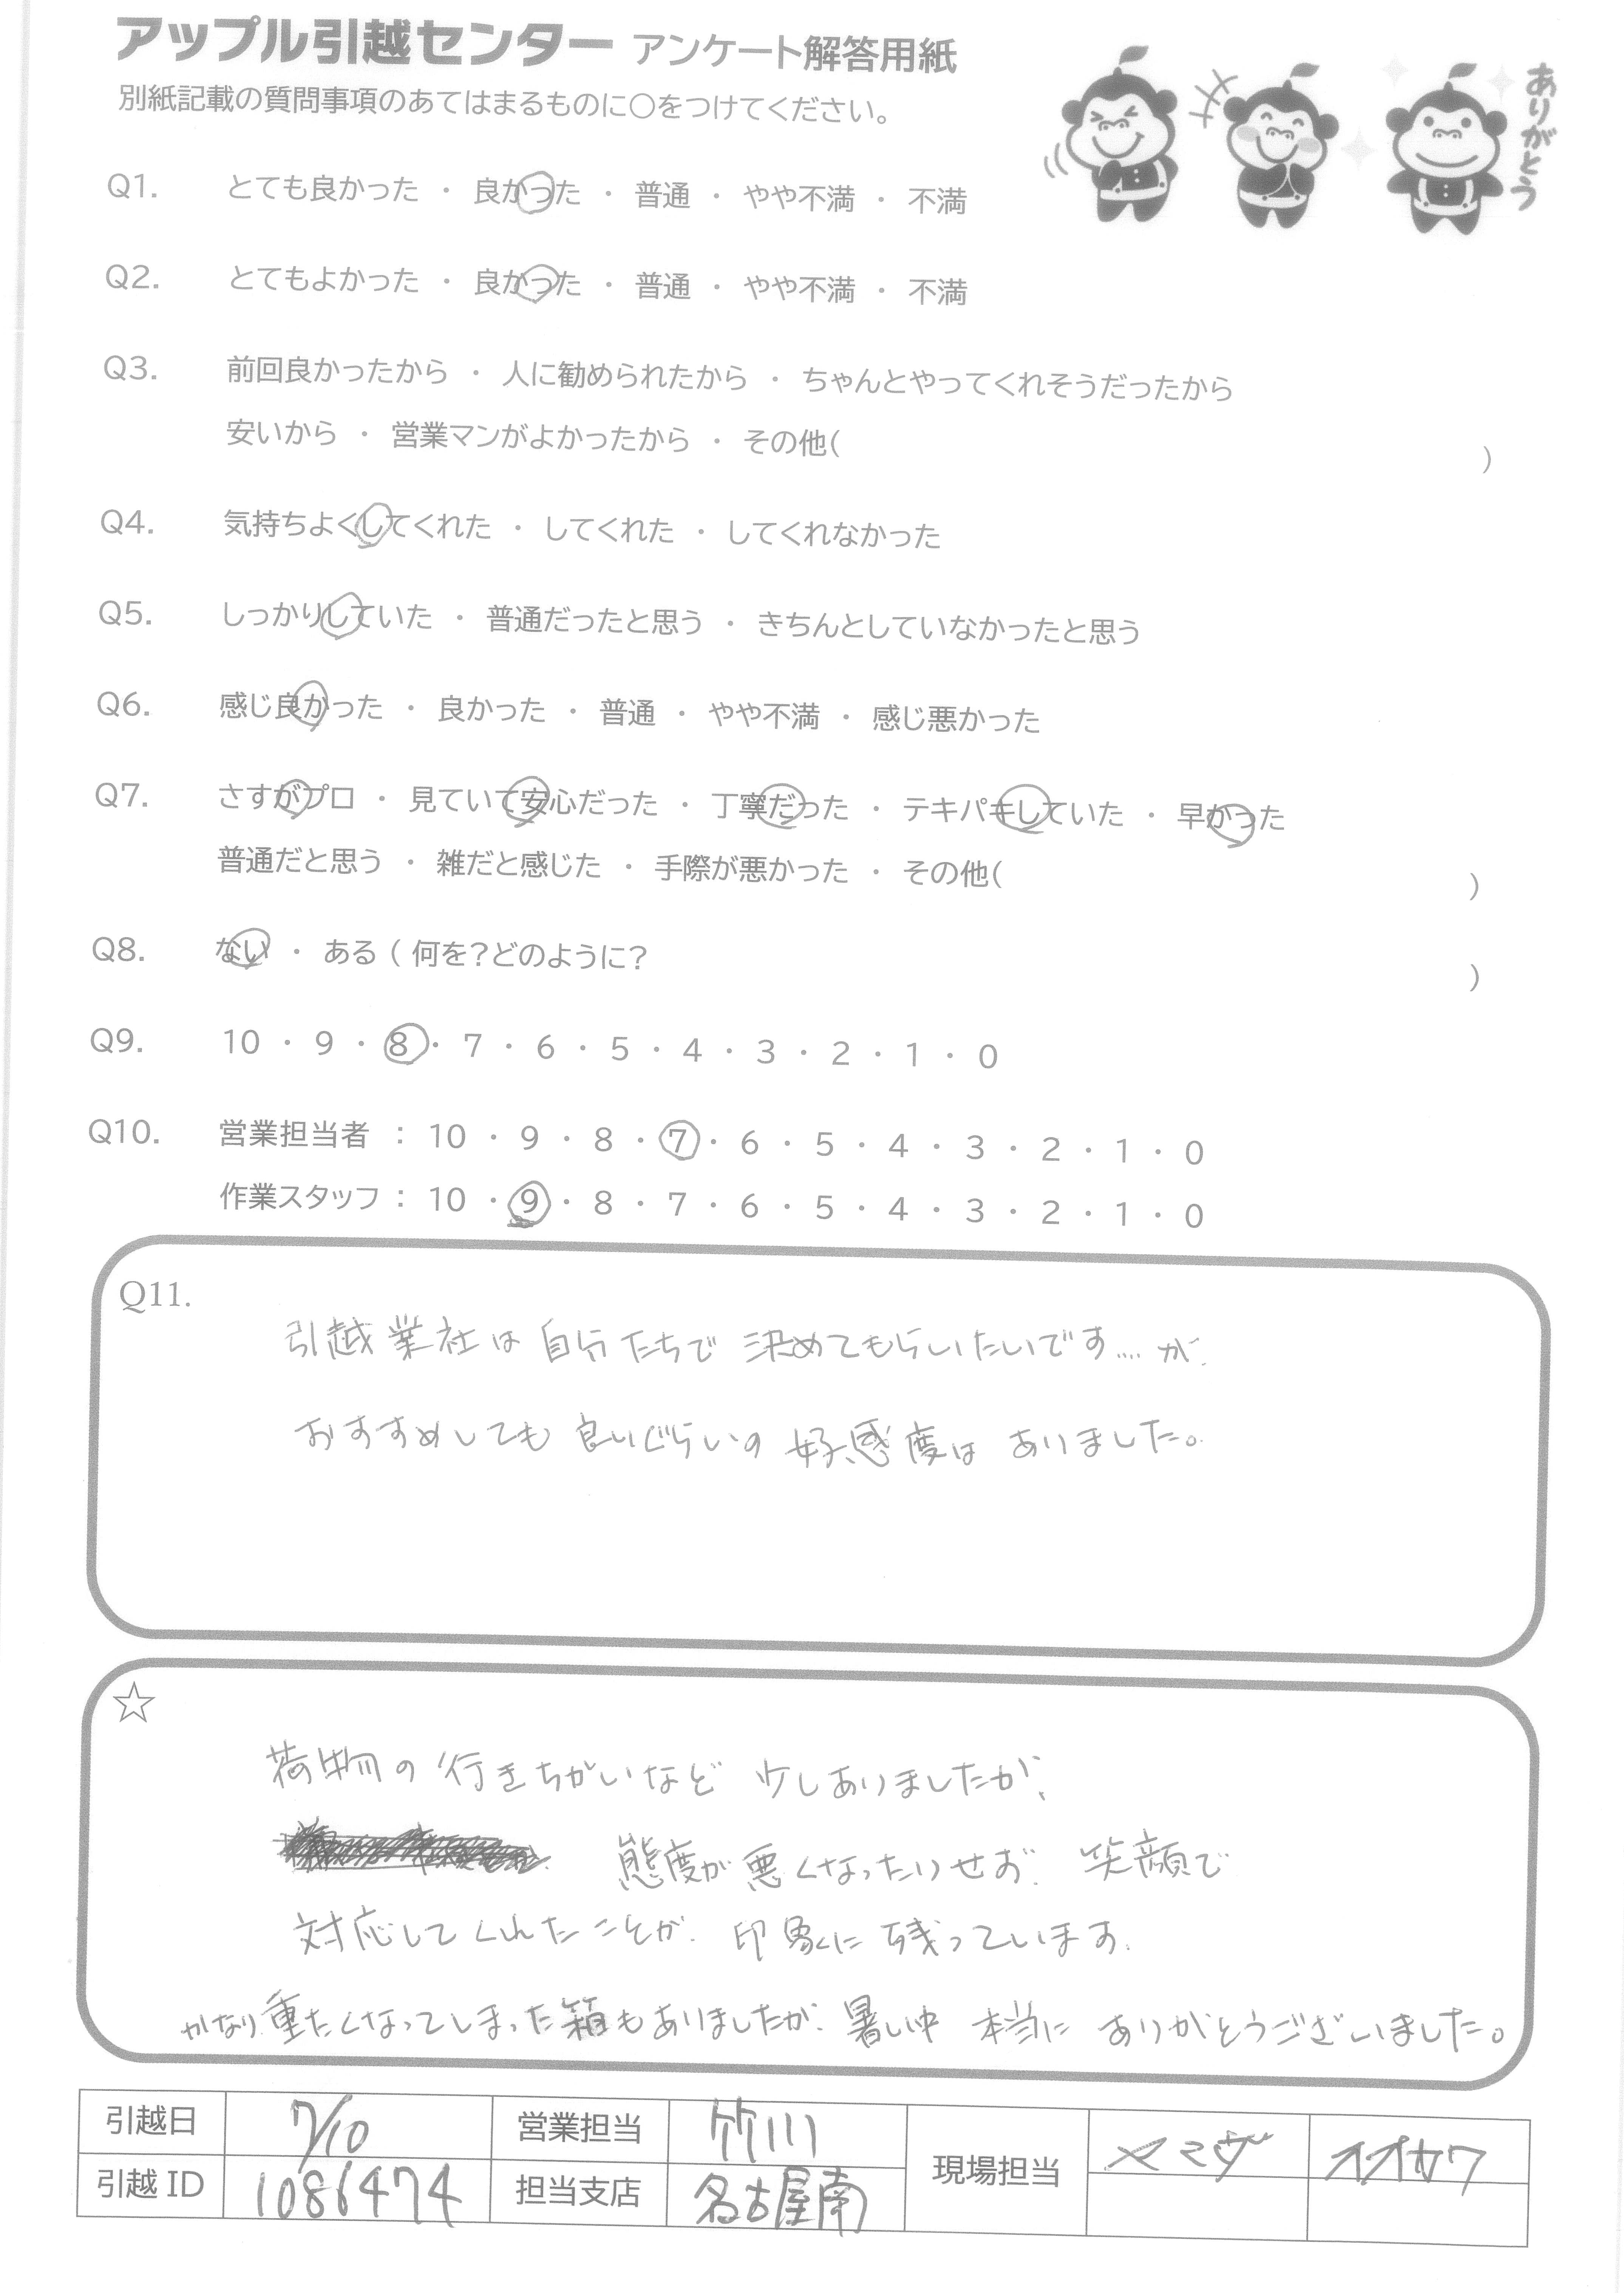 アップル引越センター アンケート解答用紙
別紙記載の質問事項のあてはまるものに〇をつけてください。
ありがとう
Q1. とても良かった ・ 良かった ・ 普通 ・ やや不満 ・ 不満
Q2. とてもよかった ・ 良かった ・ 普通 ・ やや不満 ・ 不満
Q3. 前回良かったから ・ 人に勧められたから ・ ちゃんとやってくれそうだったから
安いから ・ 営業マンがよかったから ・ その他( )
Q4. 気持ちよくしてくれた ・ してくれた ・ してくれなかった
Q5. しっかりしていた ・ 普通だったと思う ・ きちんとしていなかったと思う
Q6. 感じ良かった ・ 良かった ・ 普通 ・ やや不満 ・ 感じ悪かった
Q7. さすがプロ ・ 見ていて安心だった ・ 丁寧だった ・ テキパキしていた ・ 早かった
普通だと思う ・ 雑だと感じた ・ 手際が悪かった ・ その他( )
Q8. ない ・ ある ( 何を?どのように? )
Q9. 10 ・ 9 ・ 8 ・ 7 ・ 6 ・ 5 ・ 4 ・ 3 ・ 2 ・ 1 ・ 0
Q10. 営業担当者 : 10 ・ 9 ・ 8 ・ 7 ・ 6 ・ 5 ・ 4 ・ 3 ・ 2 ・ 1 ・ 0
作業スタッフ : 10 ・ 9 ・ 8 ・ 7 ・ 6 ・ 5 ・ 4 ・ 3 ・ 2 ・ 1 ・ 0
Q11.
引越業社は自分たちで決めてもらいたいです....が、
おすすめしても良いぐらいの好感度はありました。
☆
荷物の行きちがいなど少しありましたが、
態度が悪くなったりせず、笑顔で
対応してくれたことが、印象に残っています。
かなり重たくなってしまった箱もありましたが、暑い中 本当に ありがとうございました。
引越日 7/10 営業担当 竹川 現場担当 ヤマザ オオサワ
引越 ID 1086474 担当支店 名古屋南